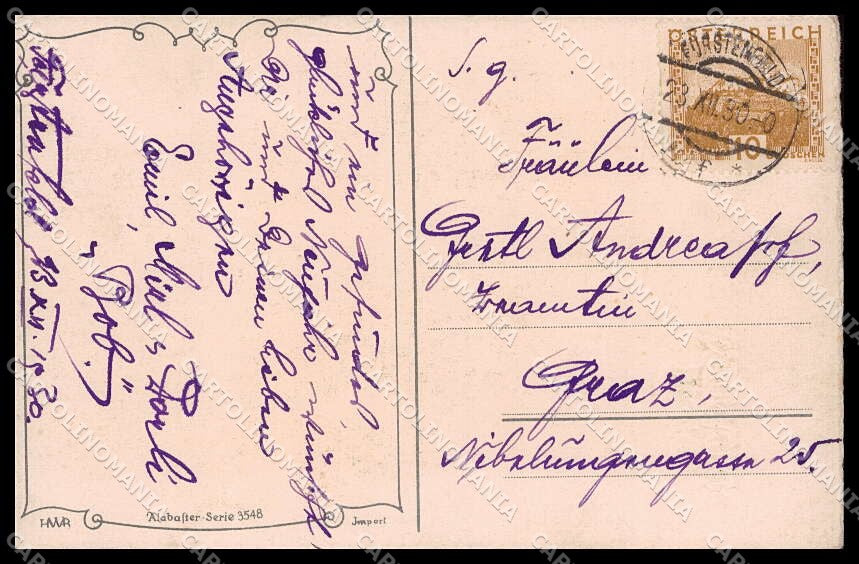 und ein gesundes,
glückliches Neujahr wünscht
Dir und Deinen lieben
Angehörigen
Emil, Mitzl, Dorli
u. "Bob."
Fürstenfeld, 23.XII.1930.
HWR
Alabaster-Serie 3548
Import
ÖSTERREICH
FÜRSTENFELD
23.XII.30
10 GROSCHEN
S. g.
Fräulein
Gretl
Beamtin
Graz,
Nibelungengasse 25.
CARTOLINOMANIA